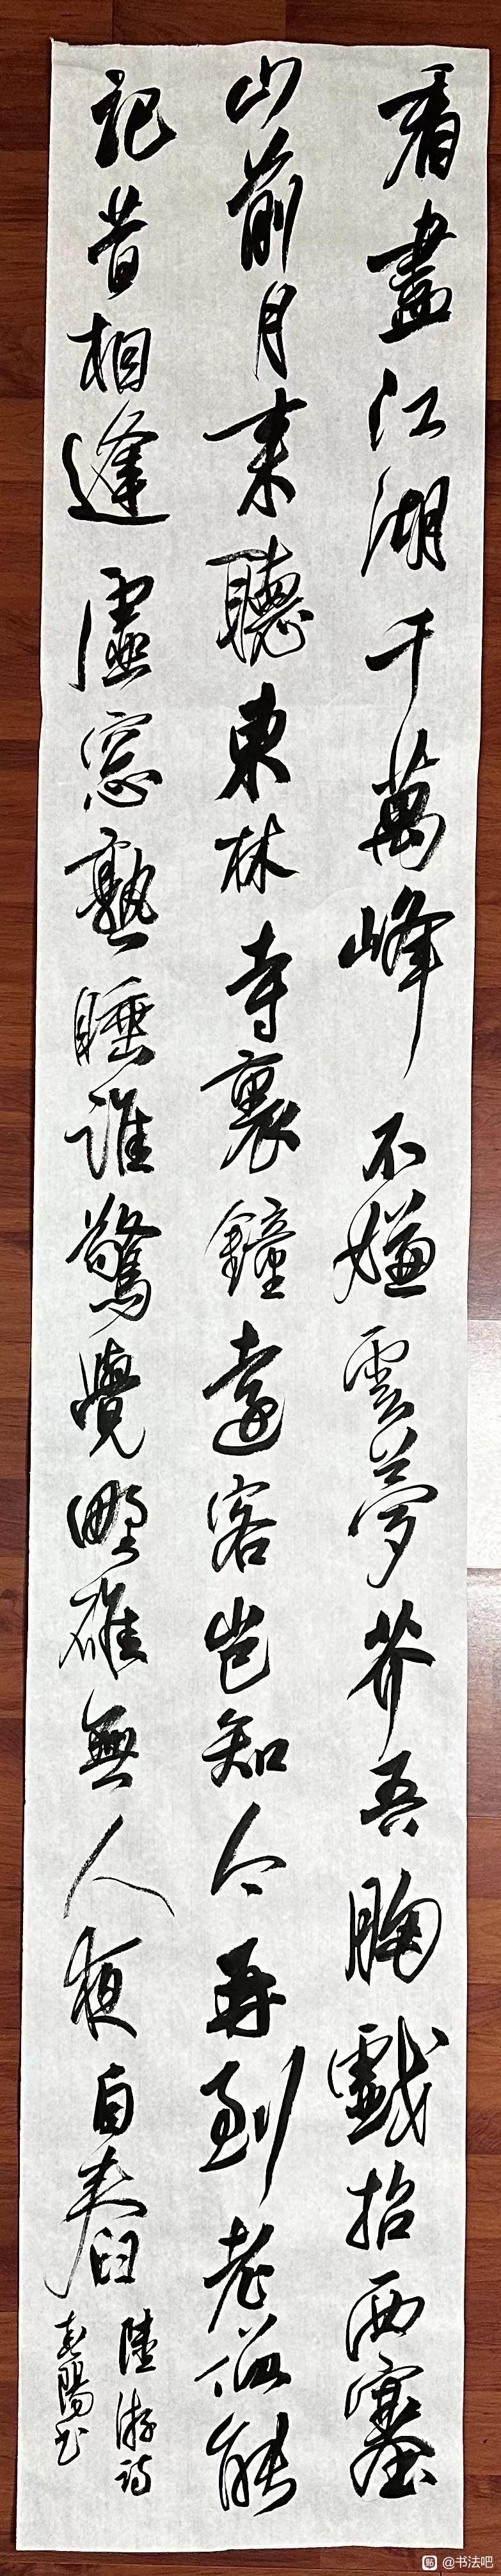 看盡江湖千萬峰不嫌雲夢芥吾胸戲招西塞
山前月来聽東林寺裏鐘遠客豈知今再到老僧能
記昔相逢虛窓熟睡誰驚覺野碓無人夜自舂
陸游詩
陽书
@书法吧